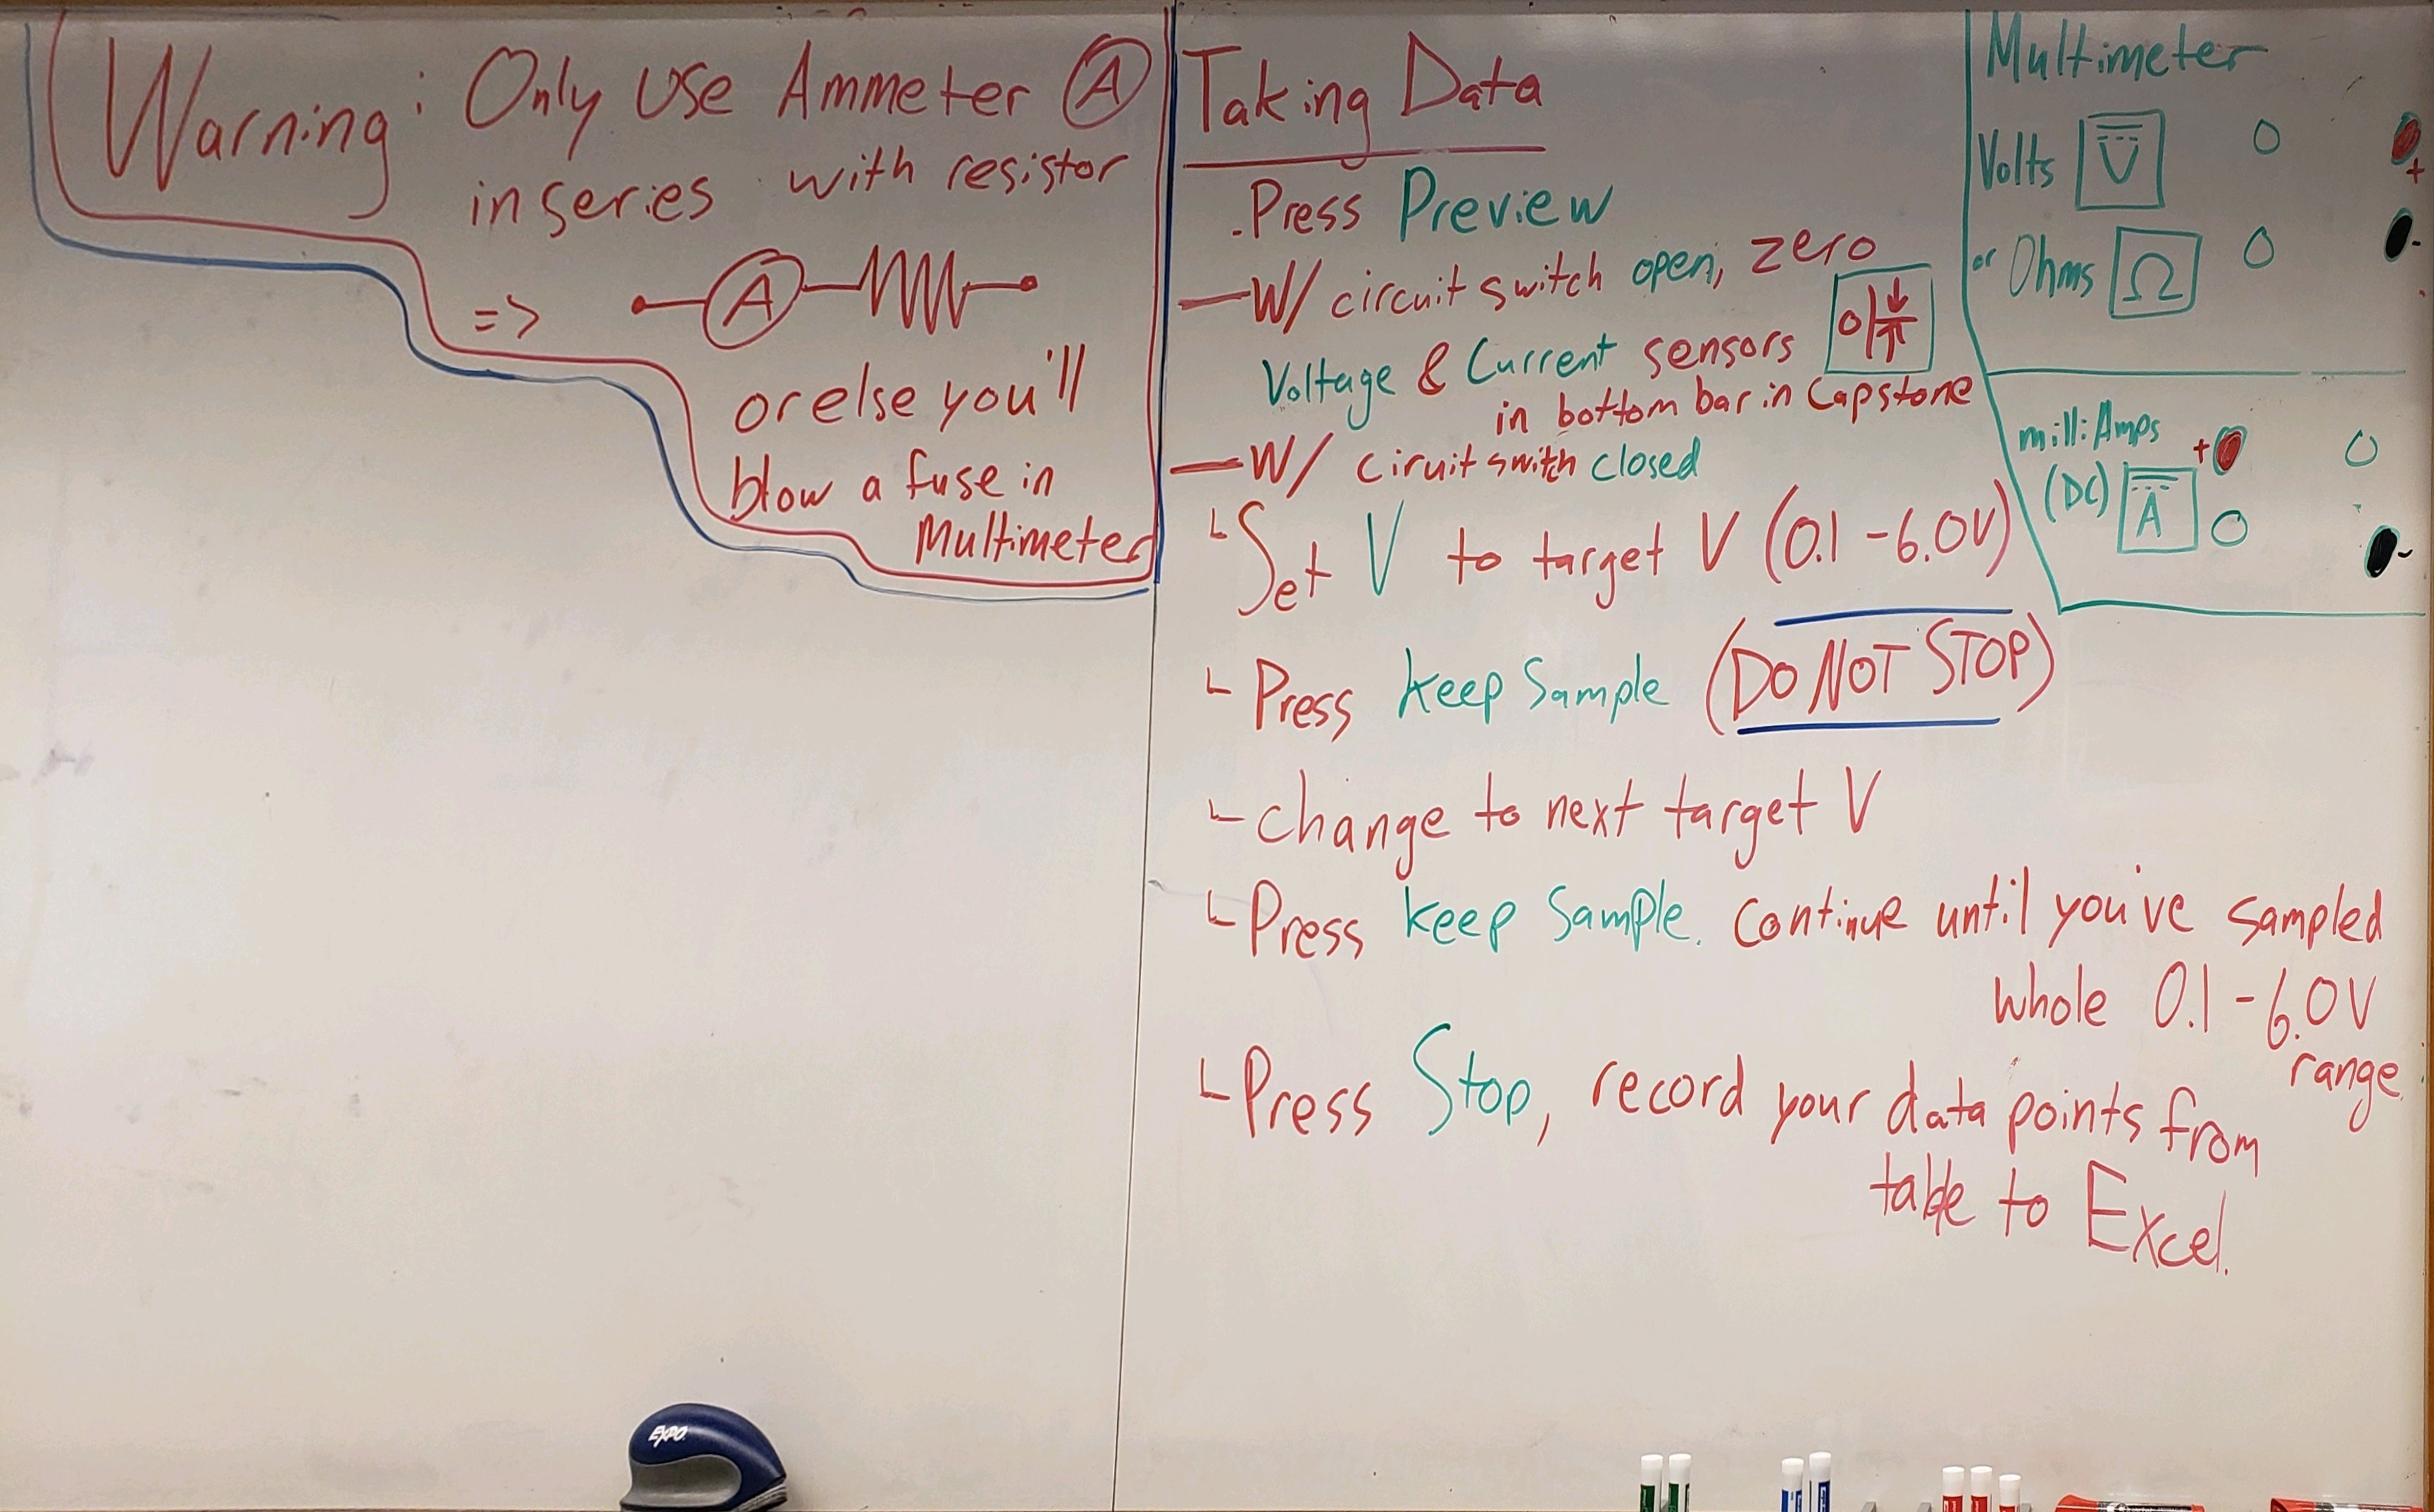 Warning: Only Use Ammeter Ⓐ
in series with resistor
=> A
or else you'll
blow a fuse in
Multimeter
Taking Data
. Press Preview
— W/ circuit switch open, zero
Voltage & Current sensors
in bottom bar in Capstone
— W/ ciruit swith closed
Set V to target V (0.1 - 6.0V)
Press keep Sample (DO NOT STOP)
change to next target V
Press keep Sample. Continue until you've sampled
whole 0.1 - 6.0V
range.
Press Stop, record your data points from
table to Excel.
Multimeter
Volts V
+
or Ohms Ω
-
milli Amps +
(DC) A
-
EXPO